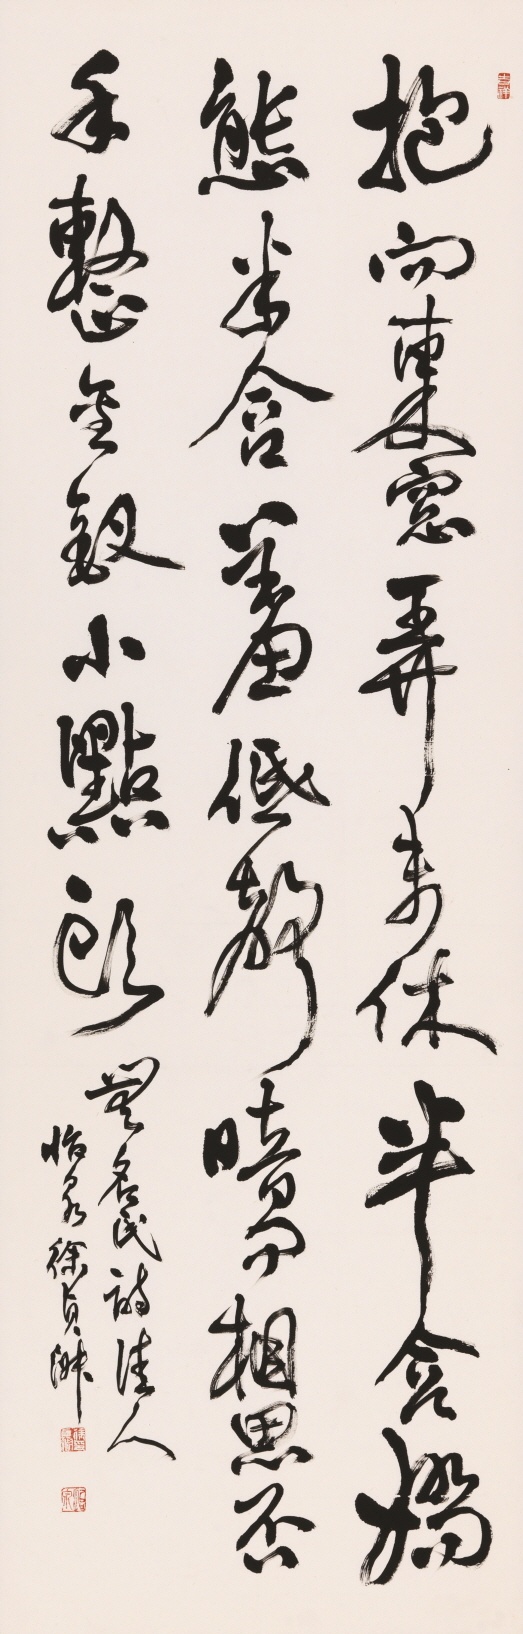 抱向東窓弄未休半含嬌
態半含羞低聲暗問相思否
手整金釵小點頭
無名氏詩佳人
怡泉徐貞淑